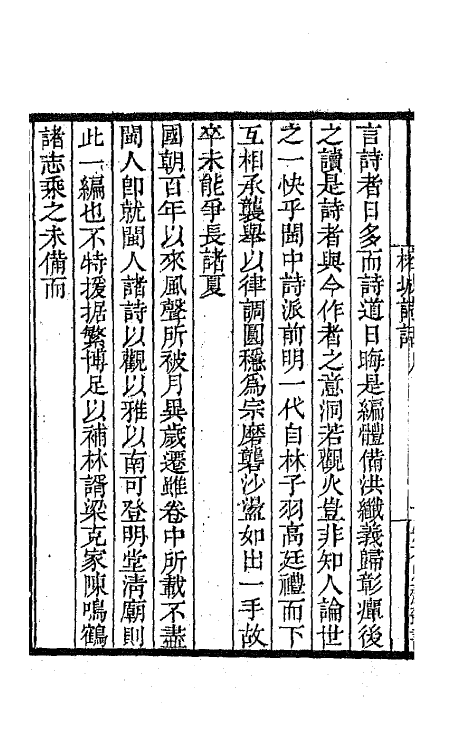 言詩者日多而詩道日晦是編體備洪纖義歸彰癉後
之讀是詩者與今作者之意洞若觀火豈非知人論世
之一快乎閩中詩派前明一代自林子羽高廷禮而下
互相承襲舉以律調圓穩為宗磨礱沙盪如出一手故
卒未能爭長諸夏
國朝百年以來風聲所被月異歲遷雖卷中所載不盡
閩人卽就閩人諸詩以觀以雅以南可登明堂淸廟則
此一編也不特援据繁博足以補林諝梁克家陳鳴鶴
諸志乘之未備而